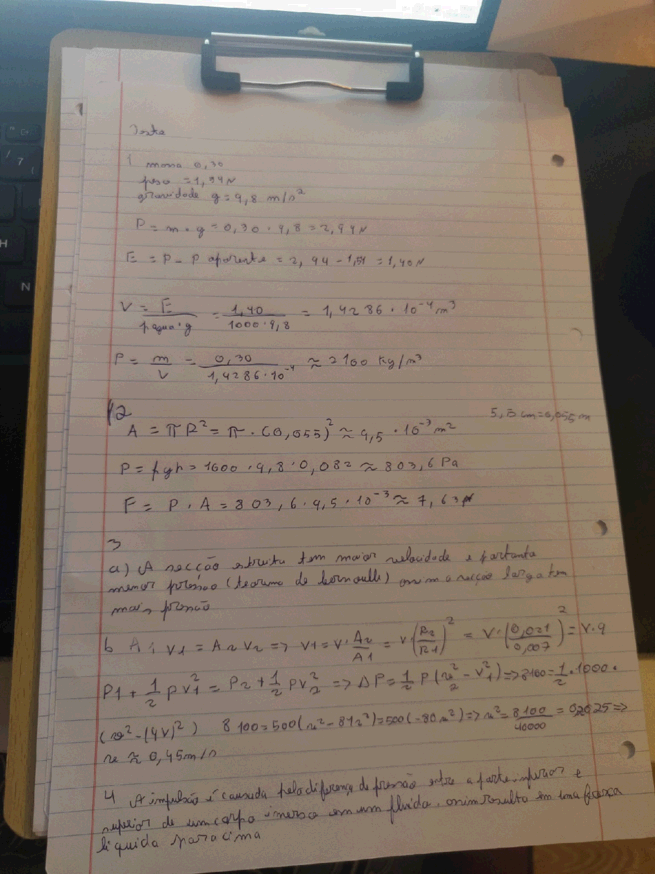 1
massa 0,30
peso = 1,54N
gravidade g = 9,8 m/s²
P = m · g = 0,30 · 9,8 = 2,94N
E = P - P aparente = 2,94 - 1,54 = 1,40N
V = E / ρagua·g = 1,40 / 1000·9,8 = 1,4286 · 10⁻⁴ m³
P = m / V = 0,30 / 1,4286·10⁻⁴ ≈ 2100 kg/m³
2
5,5 cm = 0,055 m
A = πR² = π · (0,055)² ≈ 9,5 · 10⁻³ m²
P = ρgh = 1000 · 9,8 · 0,082 ≈ 803,6 Pa
F = P · A = 803,6 · 9,5 · 10⁻³ ≈ 7,63N
3
a) A secção estreita tem maior velocidade e portanto
menor pressão (teorema de bernoulli) assim a secção larga tem
mais pressão
b A1 V1 = A2 V2 => V1 = V · A2 / A1 = V (R2 / R1)² = V · (0,021 / 0,007)² = V · 9
P1 + 1/2 ρv₁² = P2 + 1/2 ρv₂² => ΔP = 1/2 ρ(v₂² - v₁²) => 8100 = 1/2 · 1000 ·
(v² - (9V)²) 8100 = 500(v² - 81v²) = 500(-80v²) => v² = 8100 / 40000 = 0,2025 =>
v ≈ 0,45 m/s
4 A impulsão é causada pela diferença de pressão entre a parte inferior e
superior de um corpo imerso em um fluido, assim resulta em uma força
liquida para cima